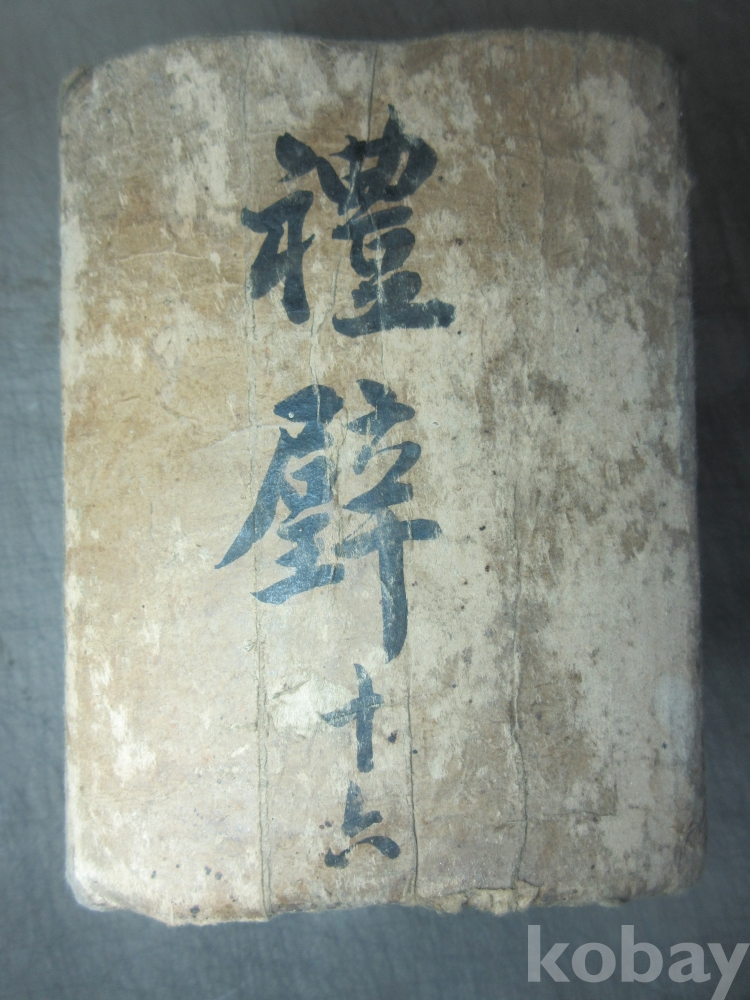 禮壁十六
kobay